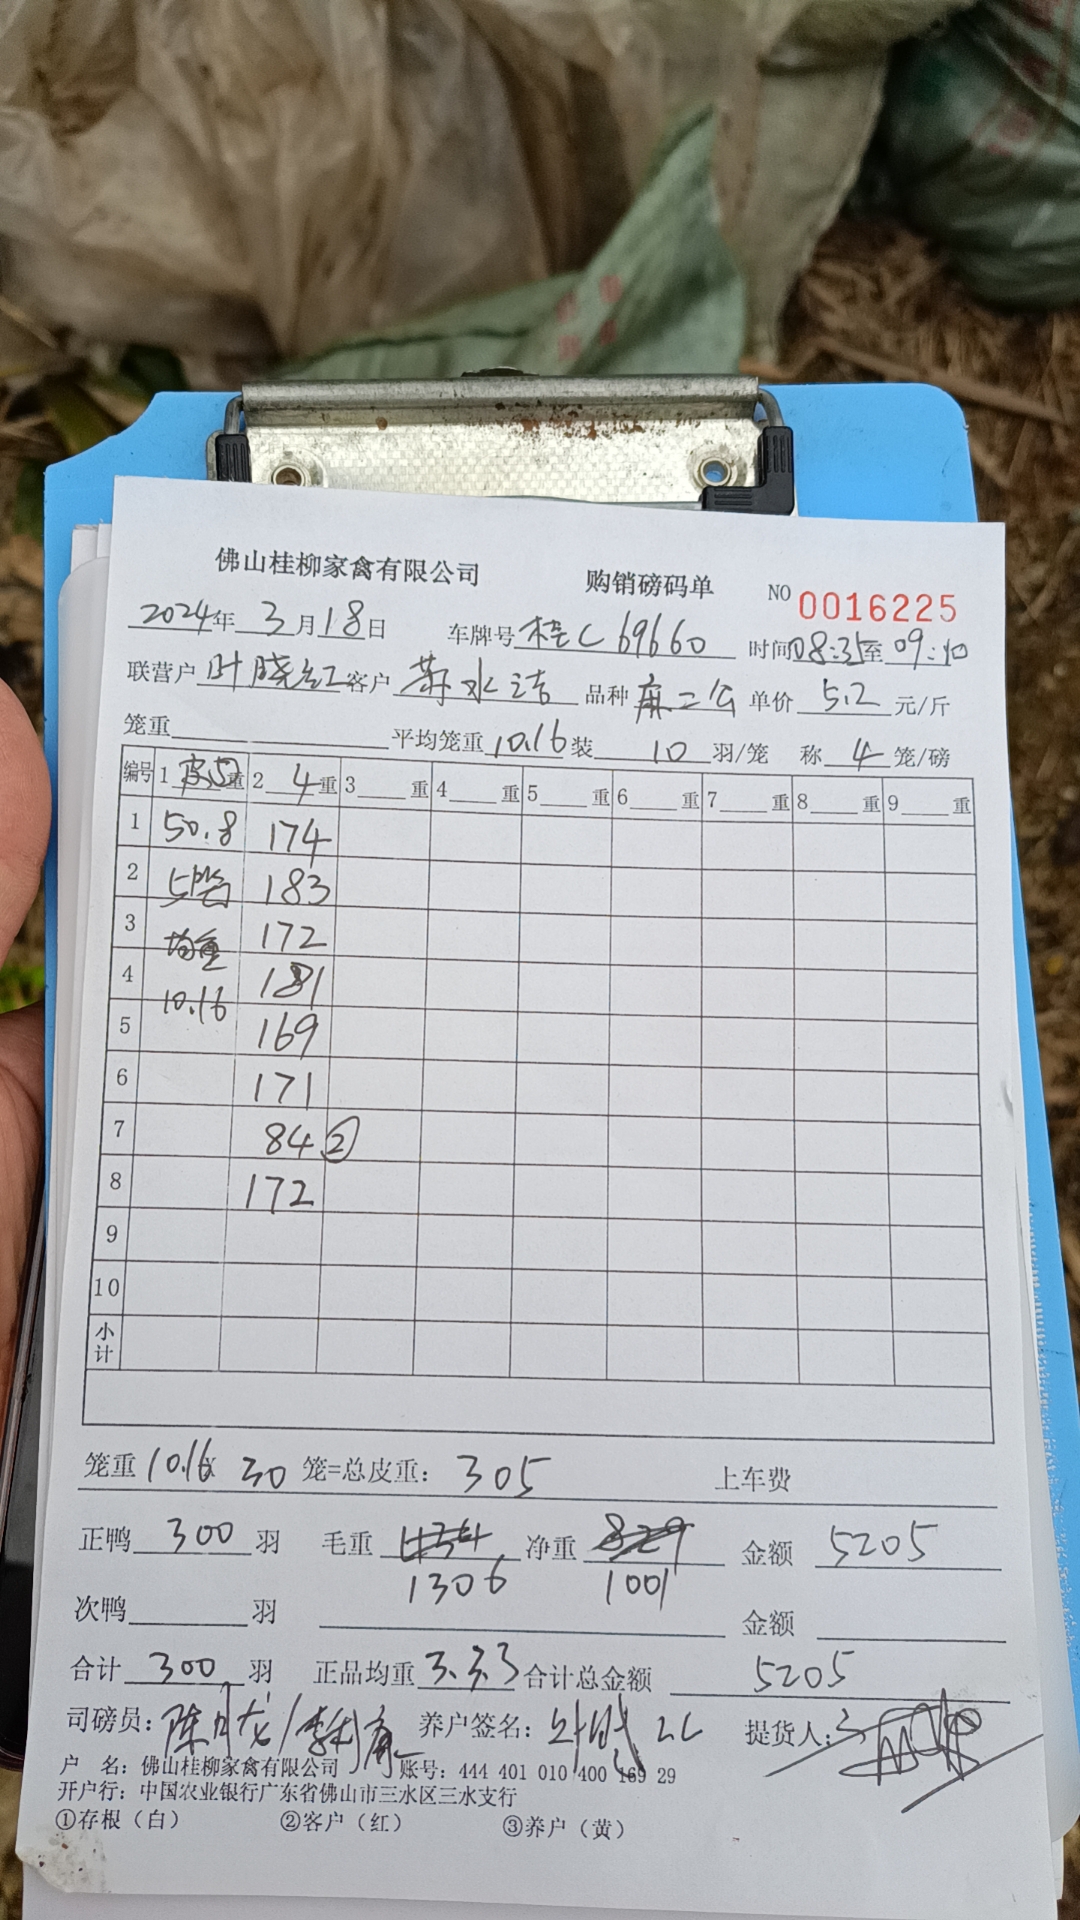 佛山桂柳家禽有限公司 购销磅码单 NO 0016225
2024年 3月18日 车牌号 桂C69660 时间 08:35至09:40
联营户 叶晓红 客户 水洁 品种 麻二公 单价 5.2 元/斤
笼重 平均笼重 10.16 装 10 羽/笼 称 4 笼/磅
编号 1 皮5重 2 4重 3 重 4 重 5 重 6 重 7 重 8 重 9 重
1 50.8 174
2 5笼 183
3 均重 172
4 10.16 181
5 169
6 171
7 84 ②
8 172
9
10
小计
笼重 10.16x 30 笼=总皮重: 305 上车费
正鸭 300 羽 毛重 净重 829 金额 5205
1306 1001
次鸭 羽 金额
合计 300 羽 正品均重 3.33 合计总金额 5205
司磅员: 陈 龙/李 养户签名: 叶 红 提货人:
户 名: 佛山桂柳家禽有限公司 账号: 444 401 010 400 169 29
开户行: 中国农业银行广东省佛山市三水区三水支行
①存根（白） ②客户（红） ③养户（黄）